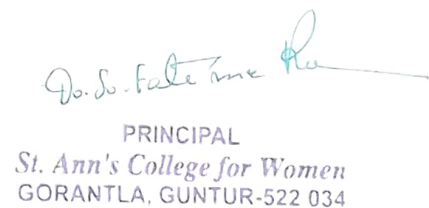 Do. Sr. Fatima Ra
PRINCIPAL
St. Ann's College for Women
GORANTLA, GUNTUR-522 034